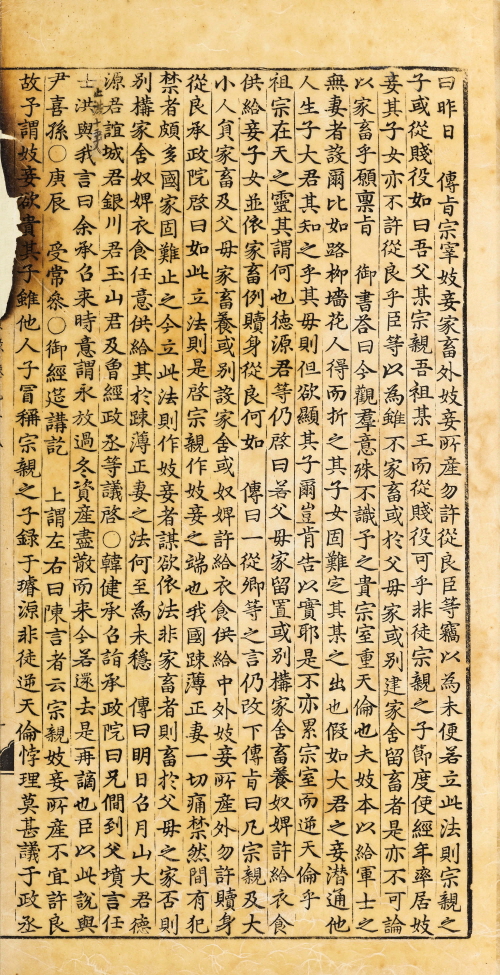 曰昨日 傳旨宗宰妓妾家畜外妓妾所產勿許從良臣等竊以為未便若立此法則宗親之
子或從賤役如曰吾父某宗親吾祖某王而從賤役可乎非徒宗親之子節度使經年率居妓
妾其子女亦不許從良乎臣等以為雖不家畜或於父母家或別建家舍留畜者是亦不可論
以家畜乎願禀旨 御書答曰今觀羣意殊不識予之貴宗室重天倫也夫妓本以給軍士之
無妻者設爾比如路柳墻花人得而折之其子女固難定其某之出也假如大君之妾潛通他
人生子大君其知之乎其母則但欲顯其子爾豈肯告以實耶是不亦累宗室而逆天倫乎
祖宗在天之靈其謂何也德源君等仍啓曰若父母家留置或別構家舍畜養奴婢許給衣食
供給妾子女並依家畜例贖身從良何如 傳曰一從卿等之言仍改下傳旨曰凡宗親及大
小人員家畜及父母家畜養或別設家舍或奴婢許給衣食供給中外妓妾所產外勿許贖身
從良承政院啓曰如此立法則是啓宗親作妓妾之端也我國踈薄正妻一切痛禁然間有犯
禁者頗多國家固難止之今立此法則作妓妾者謀欲依法非家畜者則畜於父母之家否則
別構家舍奴婢衣食任意供給其於踈薄正妻之法何至為未穩 傳曰明日召月山大君德
源君誼城君銀川君玉山君及曾經政丞等議啓○韓健承召詣承政院曰兄僩到父墳言任
士洪與我言曰余承召來時意謂永放過冬資產盡散而來今若還去是再謫也臣以此說與
尹喜孫○庚辰 受常參○御經筵講訖 上謂左右曰陳言者云宗親妓妾所產不宜許良
故予謂妓妾欲貴其子雖他人子冒稱宗親之子錄于璿源非徒逆天倫悖理莫甚議于政丞